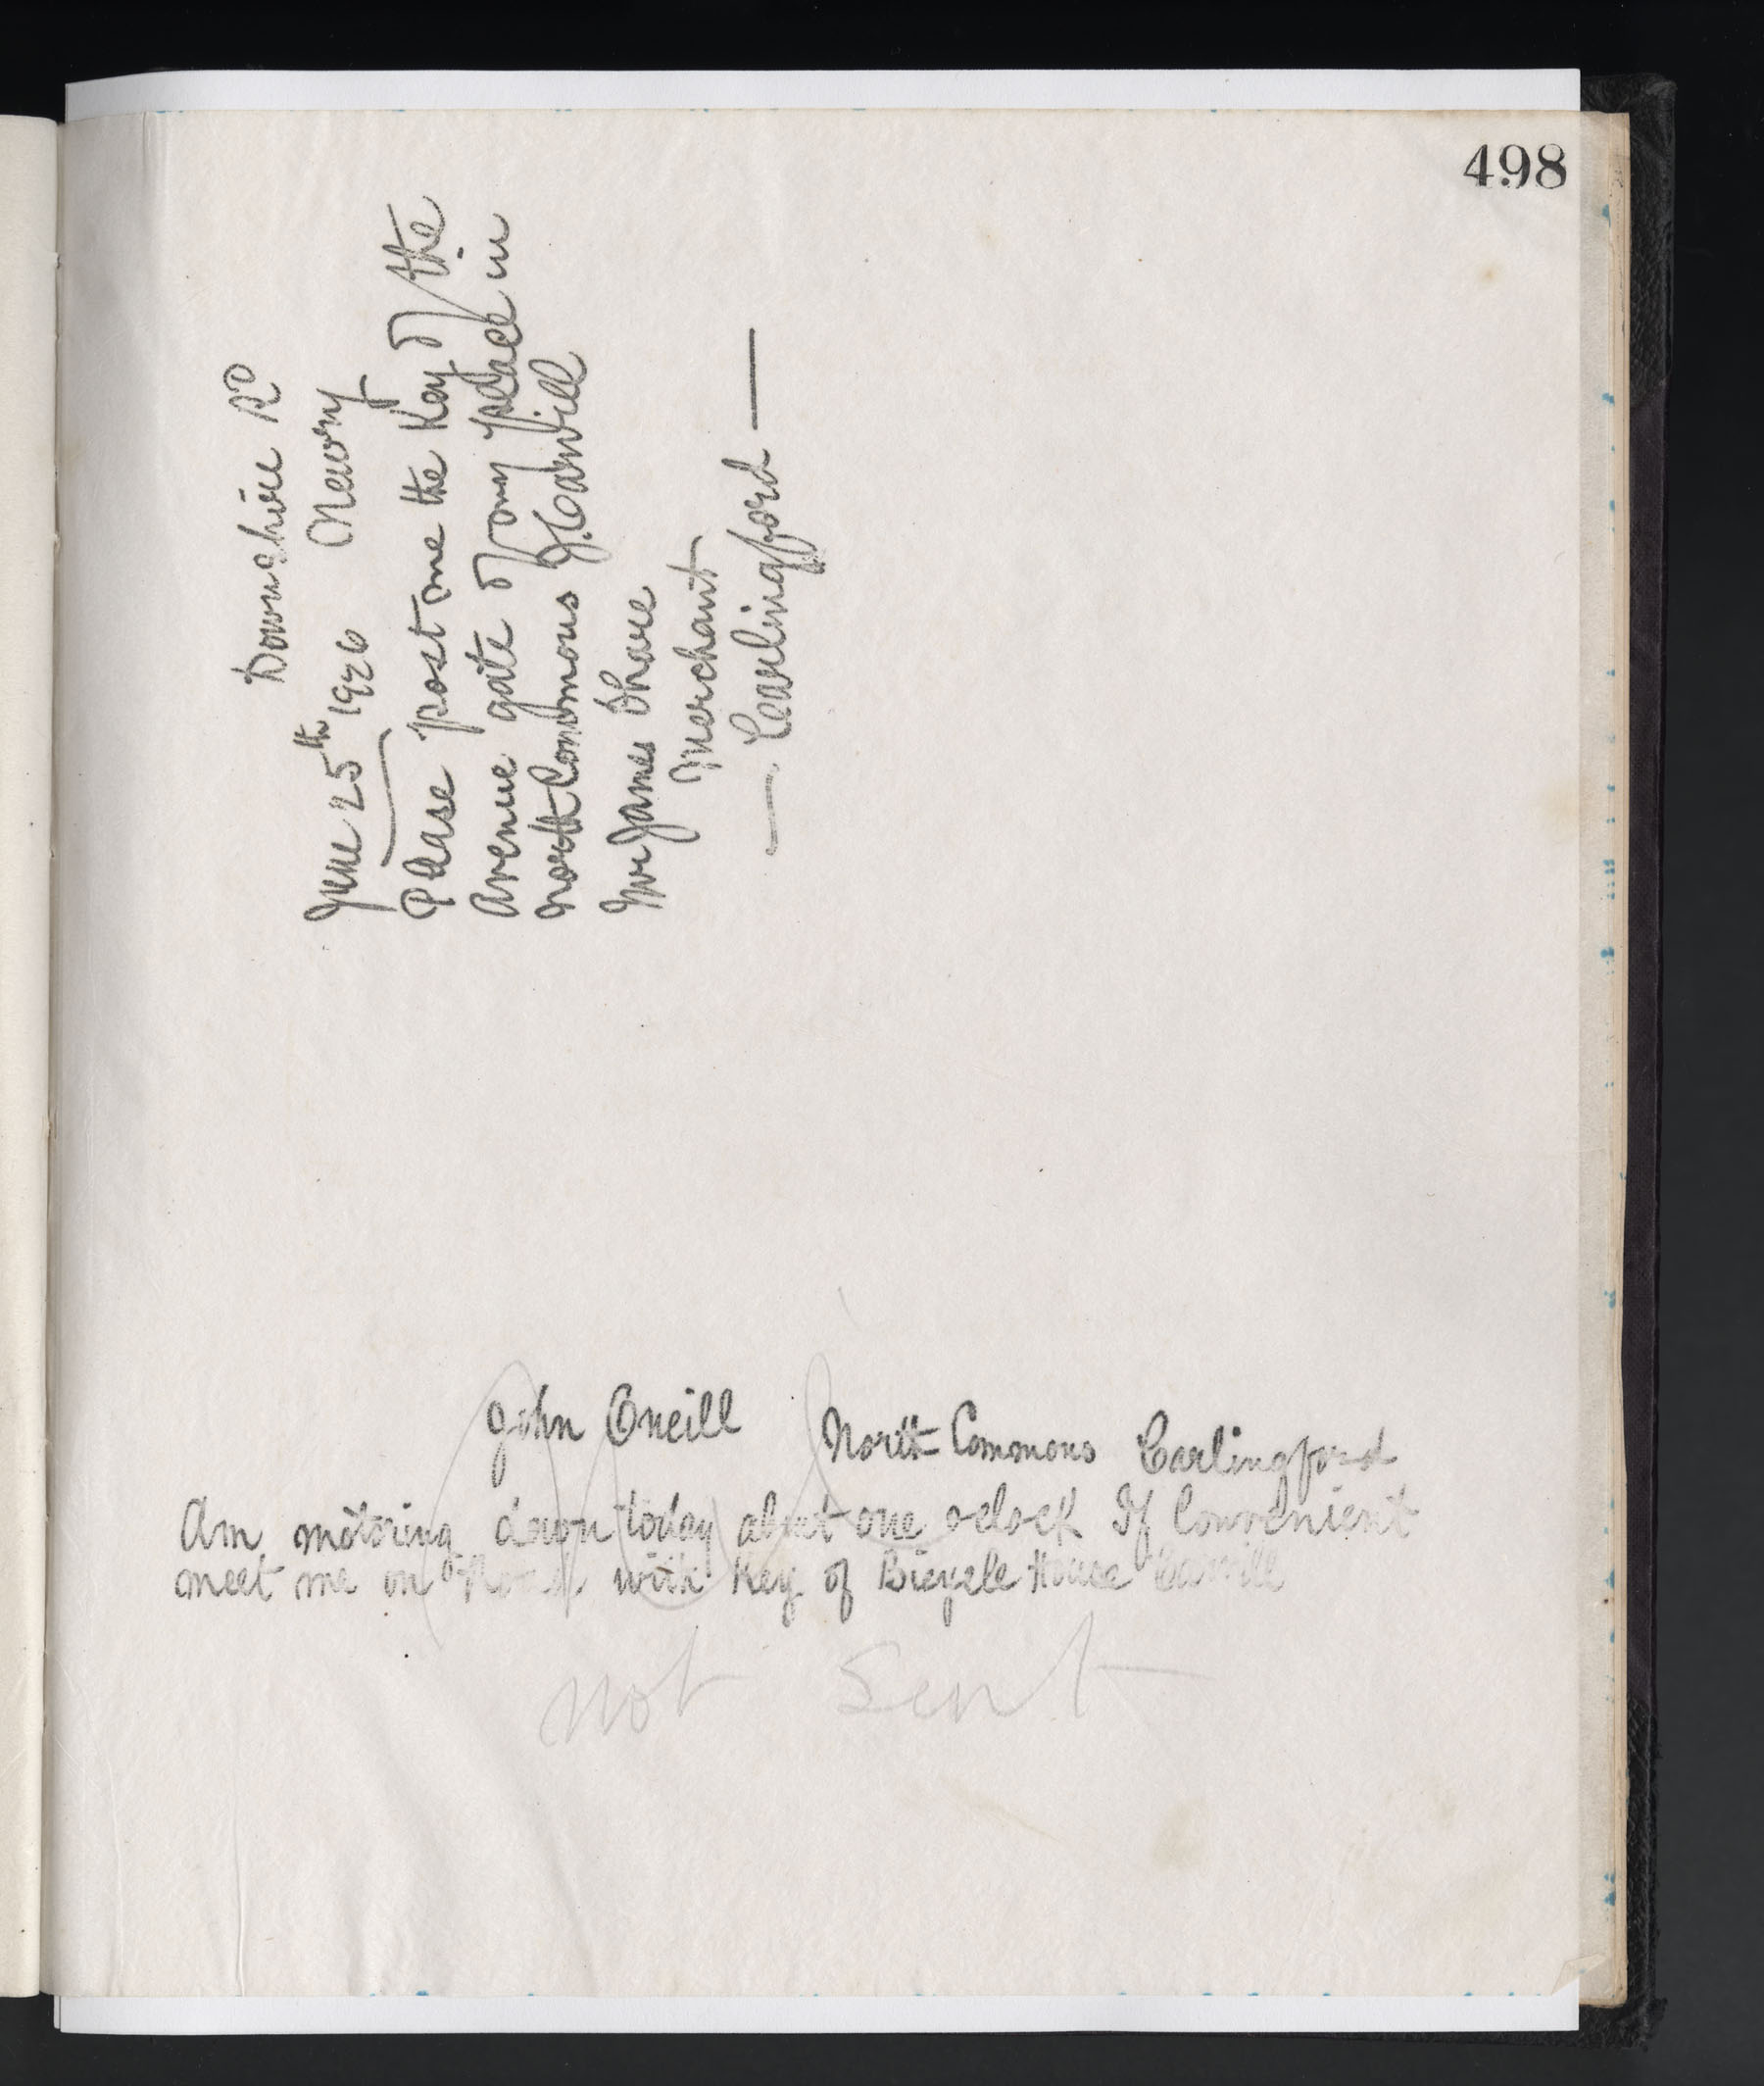 498
Downshire Rd
June 25th 1926 Newry
Please post me the Key of the
Avenue gate of my place in
North Commons J. Carvill
Mr James
Merchant
— Carlingford —
John Oneill North Commons Carlingford
Am motoring down today about one oclock If Convenient
meet me on Road with Key of Bicycle House Carvill
not Sent